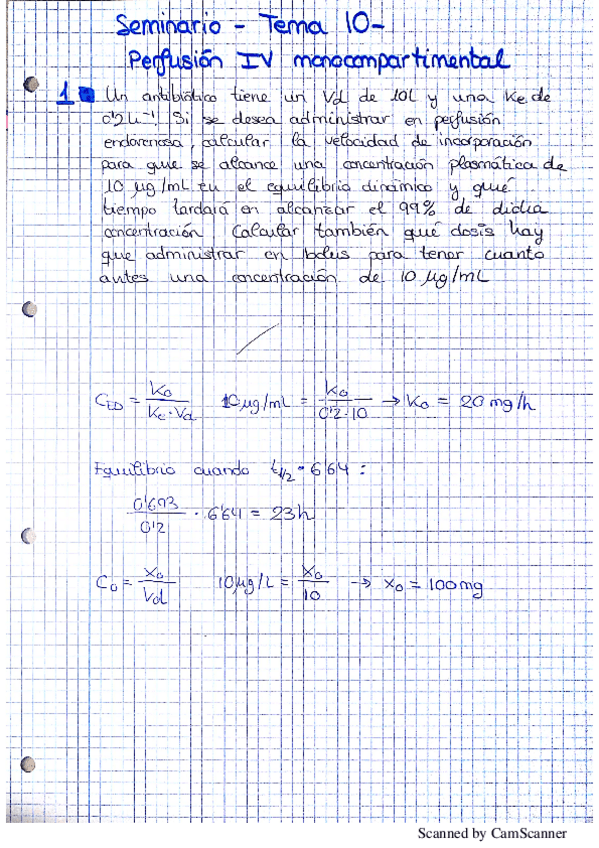 Seminario - Tema 10-
Perfusión IV monocompartimental
1 Un antibiótico tiene un Vd de 10L y una Ke de
0'2 h⁻¹. Si se desea administrar en perfusión
endovenosa, calcular la velocidad de incorporación
para que se alcance una concentración plasmática de
10 µg/mL en el equilibrio dinámico y qué
tiempo tardará en alcanzar el 99% de dicha
concentración. Calcular también qué dosis hay
que administrar en bolus para tener cuanto
antes una concentración de 10 µg/mL
C_ED = K₀ / Ke·Vd 10 µg/mL = K₀ / 0'2·10 → K₀ = 20 mg/h
Equilibrio cuando t₁/₂ · 6'64 :
0'693 / 0'2 · 6'64 = 23h
C₀ = X₀ / Vd 10 µg/L = X₀ / 10 → X₀ = 100mg
Scanned by CamScanner